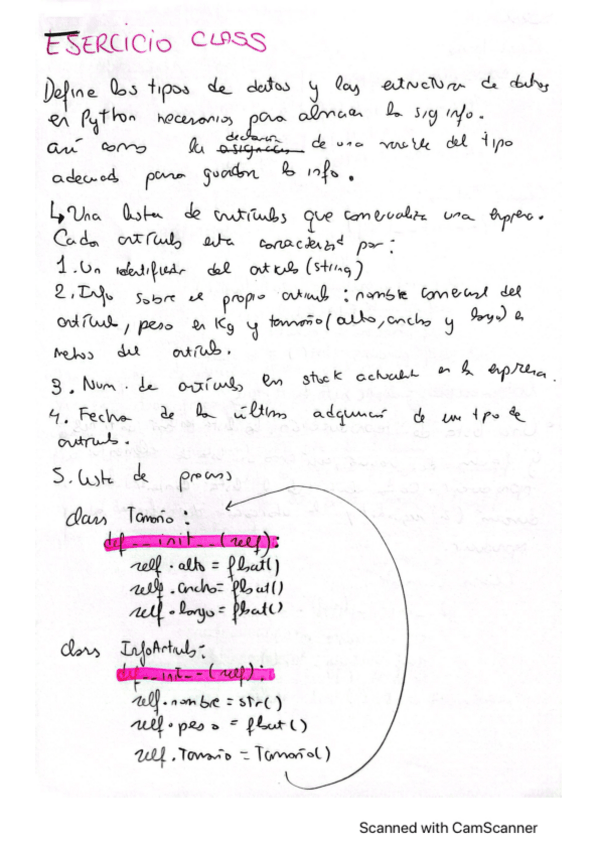 EJERCICIO CLASS
Define los tipos de datos y las estructura de datos
en Python necesarios para almacen la sig info.
así como la asignación declaración de una variable del tipo
adecuado para guardar la info.
↳ Una lista de artículos que comercializa una empresa.
Cada artículo esta caracterizad por:
1. Un identificador del artículo (string)
2. Info sobre el propio artículo: nombre comercial del
artículo, peso en Kg y tamaño (alto, ancho y largo) en
metros del artículo.
3. Num. de artículos en stock actual en la empresa.
4. Fecha de la última adquisició de un tipo de
artículo.
5. Lista de
class Tamaño:
def __init__(self):
self.alto = float()
self.ancho = float()
self.largo = float()
class InfoArticulo:
def __init__(self):
self.nombre = str()
self.peso = float()
self.Tamaño = Tamaño()
Scanned with CamScanner